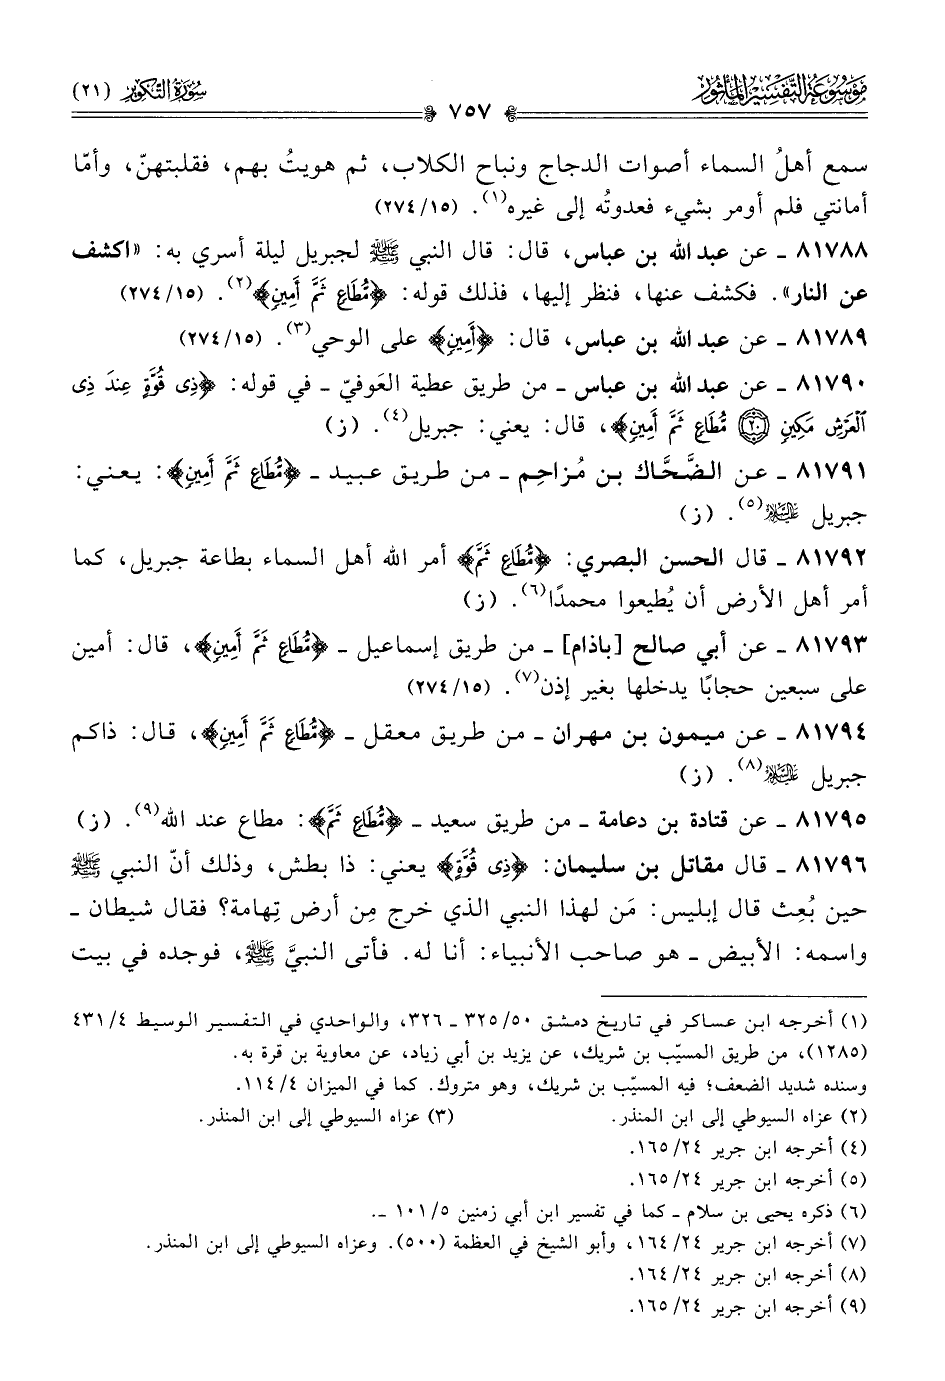 مَوْسُوعَة التَّفْسِيْر المَأْثُور
سُورَةُ التَّكْوِير (٢١)
٧٥٧
سمع أهلُ السماء أصوات الدجاج ونباح الكلاب، ثم هويتُ بهم، فقلبتهنّ، وأمّا
أمانتي فلم أومر بشيء فعدوتُه إلى غيره(١). (٢٧٤/١٥)
٨١٧٨٨ ـ عن عبد الله بن عباس، قال: قال النبي ﷺ لجبريل ليلة أسري به: «اكشف
عن النار». فكشف عنها، فنظر إليها، فذلك قوله: ﴿مُّطَاعٍ ثَمَّ أَمِينٍ﴾(٢). (٢٧٤/١٥)
٨١٧٨٩ ـ عن عبد الله بن عباس، قال: ﴿أَمِينٍ﴾ على الوحي(٣). (٢٧٤/١٥)
٨١٧٩٠ ـ عن عبد الله بن عباس ـ من طريق عطية العَوفيّ ـ في قوله: ﴿ذِى قُوَّةٍ عِندَ ذِى
ٱلْعَرْشِ مَكِينٍ ۝٢٠ مُّطَاعٍ ثَمَّ أَمِينٍ﴾، قال: يعني: جبريل(٤). (ز)
٨١٧٩١ ـ عن الضَّحَّاك بن مُزاحِم ـ من طريق عبيد ـ ﴿مُّطَاعٍ ثَمَّ أَمِينٍ﴾: يعني:
جبريل عليه السلام(٥). (ز)
٨١٧٩٢ ـ قال الحسن البصري: ﴿مُّطَاعٍ ثَمَّ﴾ أمر الله أهل السماء بطاعة جبريل، كما
أمر أهل الأرض أن يُطيعوا محمدًا(٦). (ز)
٨١٧٩٣ ـ عن أبي صالح [باذام] ـ من طريق إسماعيل ـ ﴿مُّطَاعٍ ثَمَّ أَمِينٍ﴾، قال: أمين
على سبعين حجابًا يدخلها بغير إذن(٧). (٢٧٤/١٥)
٨١٧٩٤ ـ عن ميمون بن مهران ـ من طريق معقل ـ ﴿مُّطَاعٍ ثَمَّ أَمِينٍ﴾، قال: ذاكم
جبريل عليه السلام(٨). (ز)
٨١٧٩٥ ـ عن قتادة بن دعامة ـ من طريق سعيد ـ ﴿مُّطَاعٍ ثَمَّ﴾: مطاع عند الله(٩). (ز)
٨١٧٩٦ ـ قال مقاتل بن سليمان: ﴿ذِى قُوَّةٍ﴾ يعني: ذا بطش، وذلك أنّ النبي ﷺ
حين بُعِث قال إبليس: مَن لهذا النبي الذي خرج مِن أرض تِهامة؟ فقال شيطان ـ
واسمه: الأبيض ـ هو صاحب الأنبياء: أنا له. فأتى النبيَّ ﷺ، فوجده في بيت
(١) أخرجه ابن عساكر في تاريخ دمشق ٣٢٥/٥٠ ـ ٣٢٦، والواحدي في التفسير الوسيط ٤٣١/٤
(١٢٨٥)، من طريق المسيّب بن شريك، عن يزيد بن أبي زياد، عن معاوية بن قرة به.
وسنده شديد الضعف؛ فيه المسيّب بن شريك، وهو متروك. كما في الميزان ١١٤/٤.
(٢) عزاه السيوطي إلى ابن المنذر. (٣) عزاه السيوطي إلى ابن المنذر.
(٤) أخرجه ابن جرير ١٦٥/٢٤.
(٥) أخرجه ابن جرير ١٦٥/٢٤.
(٦) ذكره يحيى بن سلام ـ كما في تفسير ابن أبي زمنين ١٠١/٥ ـ.
(٧) أخرجه ابن جرير ١٦٤/٢٤، وأبو الشيخ في العظمة (٥٠٠). وعزاه السيوطي إلى ابن المنذر.
(٨) أخرجه ابن جرير ١٦٤/٢٤.
(٩) أخرجه ابن جرير ١٦٥/٢٤.